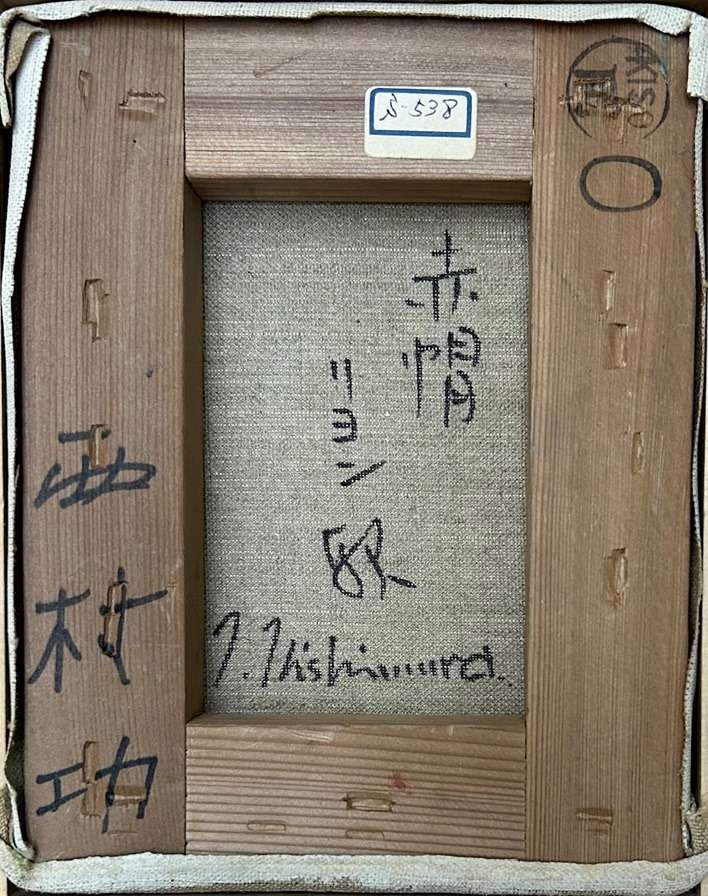 S-538
0
赤帽
リヨン駅
I. Nishimura.
西村功